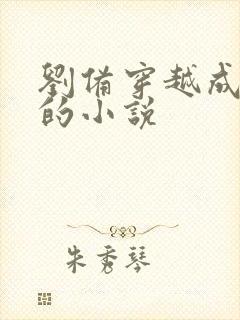 劉備穿越成
的小説
朱秀琴